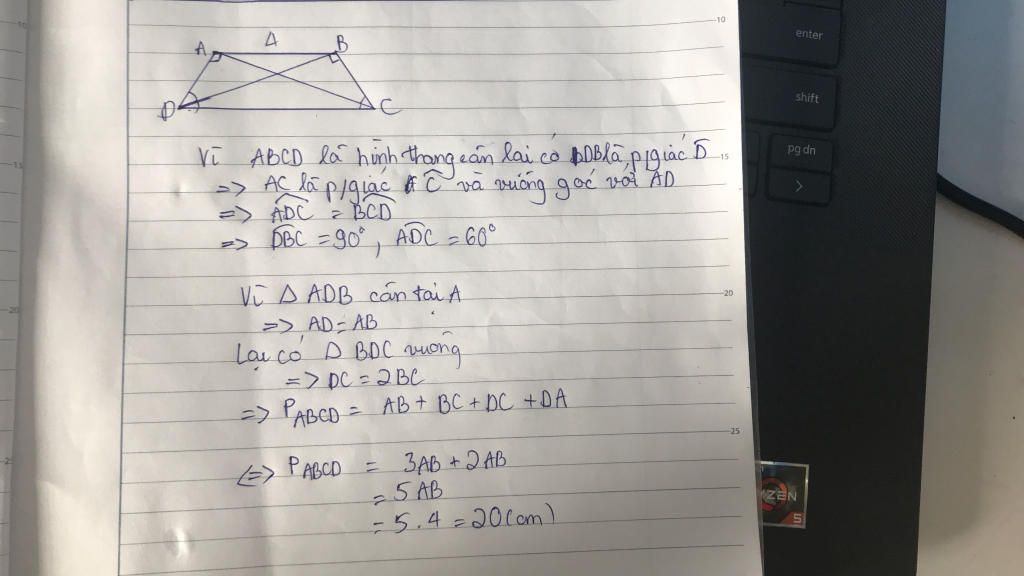 10
A 4 B
D C
Vì ABCD là hình thang cân lại có DB là p/giác D̂ 15
=> AC là p/giác Ĉ và vuông góc với AD
=> ADC = BCD
=> DBC = 90°, ADC = 60°
Vì Δ ADB cân tại A 20
=> AD = AB
Lại có Δ BDC vuông
=> DC = 2BC
=> P ABCD = AB + BC + DC + DA
25
<=> P ABCD = 3AB + 2AB
= 5 AB
= 5 . 4 = 20 (cm)
enter
shift
pg dn
ZEN
5